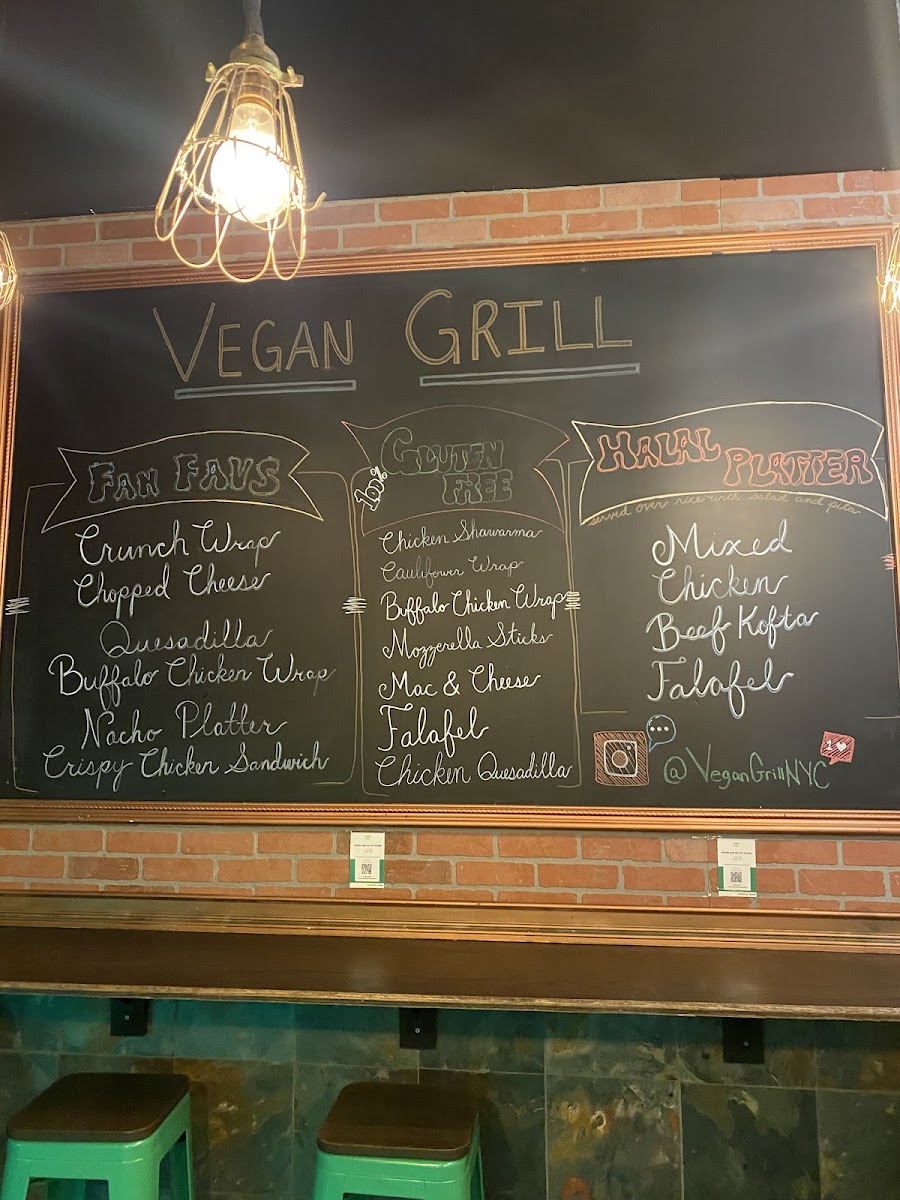 VEGAN GRILL
FAN FAVS
Crunch Wrap
Chopped Cheese
Quesadilla
Buffalo Chicken Wrap
Nacho Platter
Crispy Chicken Sandwich
100%
GLUTEN
FREE
Chicken Shawarma
Cauliflower Wrap
Buffalo Chicken Wrap
Mozzerella Sticks
Mac & Cheese
Falafel
Chicken Quesadilla
HALAL
PLATTER
served over rice with salad and pita
Mixed
Chicken
Beef Kofta
Falafel
@VeganGrillNYC
1